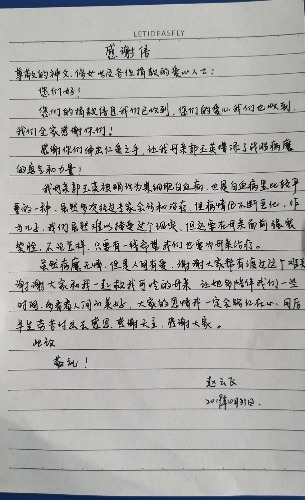 LETIDEASFLY
感谢信
尊敬的神父、修女以及各位捐款的爱心人士：
您们好！
您们的捐款信息我们已收到，您们的爱心我们也收到，
我们全家感谢你们！
感谢你们伸出仁爱之手，让我母亲郭玉英增添了战胜病魔
的勇气和力量！
我母亲郭玉英被确诊为浆细胞白血病，也是白血病里比较严
重的一种，虽然多次转送专家会诊和治疗，但病情仍不断恶化，作
为儿子，我们虽然难以接受这个现实，但还要在母亲面前强装
笑脸，不论怎样，只要有一线希望我们也要为母亲治疗。
虽然病魔无情，但是人间有爱，谢谢大家帮有渡过这个难关
谢谢大家和我一起救我可怜的母亲，让她多陪伴我们一些
时间，再看看人间的美好，大家的恩情我一定会铭记在心，用后
半生实际付出去感恩，感谢天主，感谢大家。
此致
敬礼！
赵云飞
10月31日